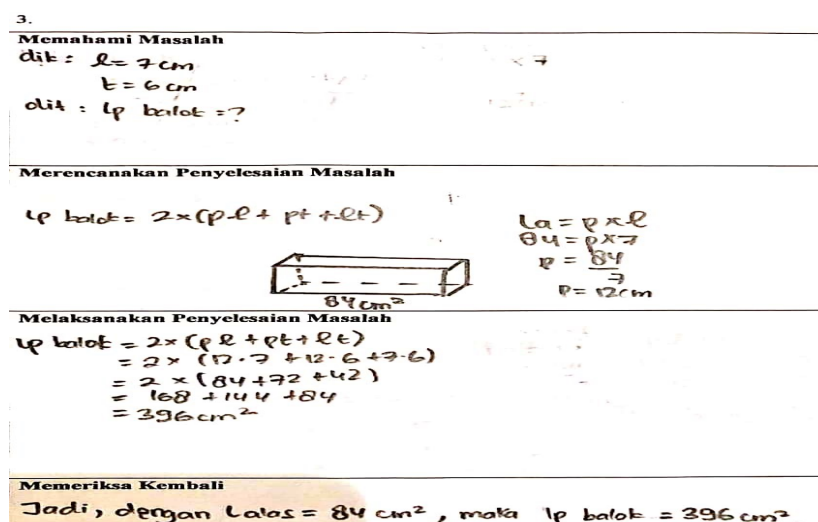 3.
Memahami Masalah
dik : l = 7 cm
t = 6 cm
dit : Lp balok = ?
Merencanakan Penyelesaian Masalah
Lp balok = 2×(p.l + pt + lt)
La = p×l
84 = p×7
p = 84/7
p = 12cm
84 cm²
Melaksanakan Penyelesaian Masalah
Lp balok = 2×(pl + pt + lt)
= 2 × (12.7 + 12.6 + 7.6)
= 2 × (84 + 72 + 42)
= 168 + 144 + 84
= 396 cm²
Memeriksa Kembali
Jadi, dengan Lalas = 84 cm², maka lp balok = 396 cm²